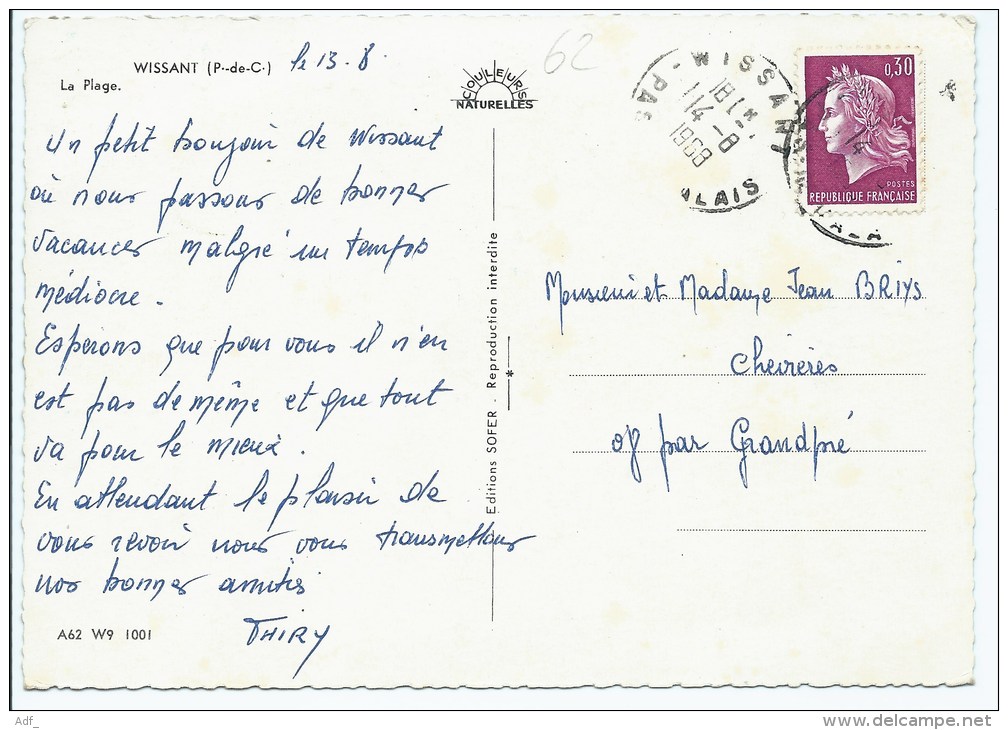 WISSANT (P.-de-C.)
La Plage.
le 13-8
62
COULEURS
NATURELLES
Un petit bonjour de Wissant
où nous passons de bonnes
vacances malgré un temps
médiocre.
Esperons que pour vous il n'en
est pas de même et que tout
va pour le mieux.
En attendant le plaisir de
vous revoir nous vous transmettons
nos bonnes amitiés
THIRY
A62 W9 1001
Editions SOFER. Reproduction interdite
WISSANT
PAS
CALAIS
18H
14-8
1968
0,30
POSTES
REPUBLIQUE FRANÇAISE
Monsieur et Madame Jean BRIYS
Chevières
08 par Grandpré
Adf_
www.delcampe.net